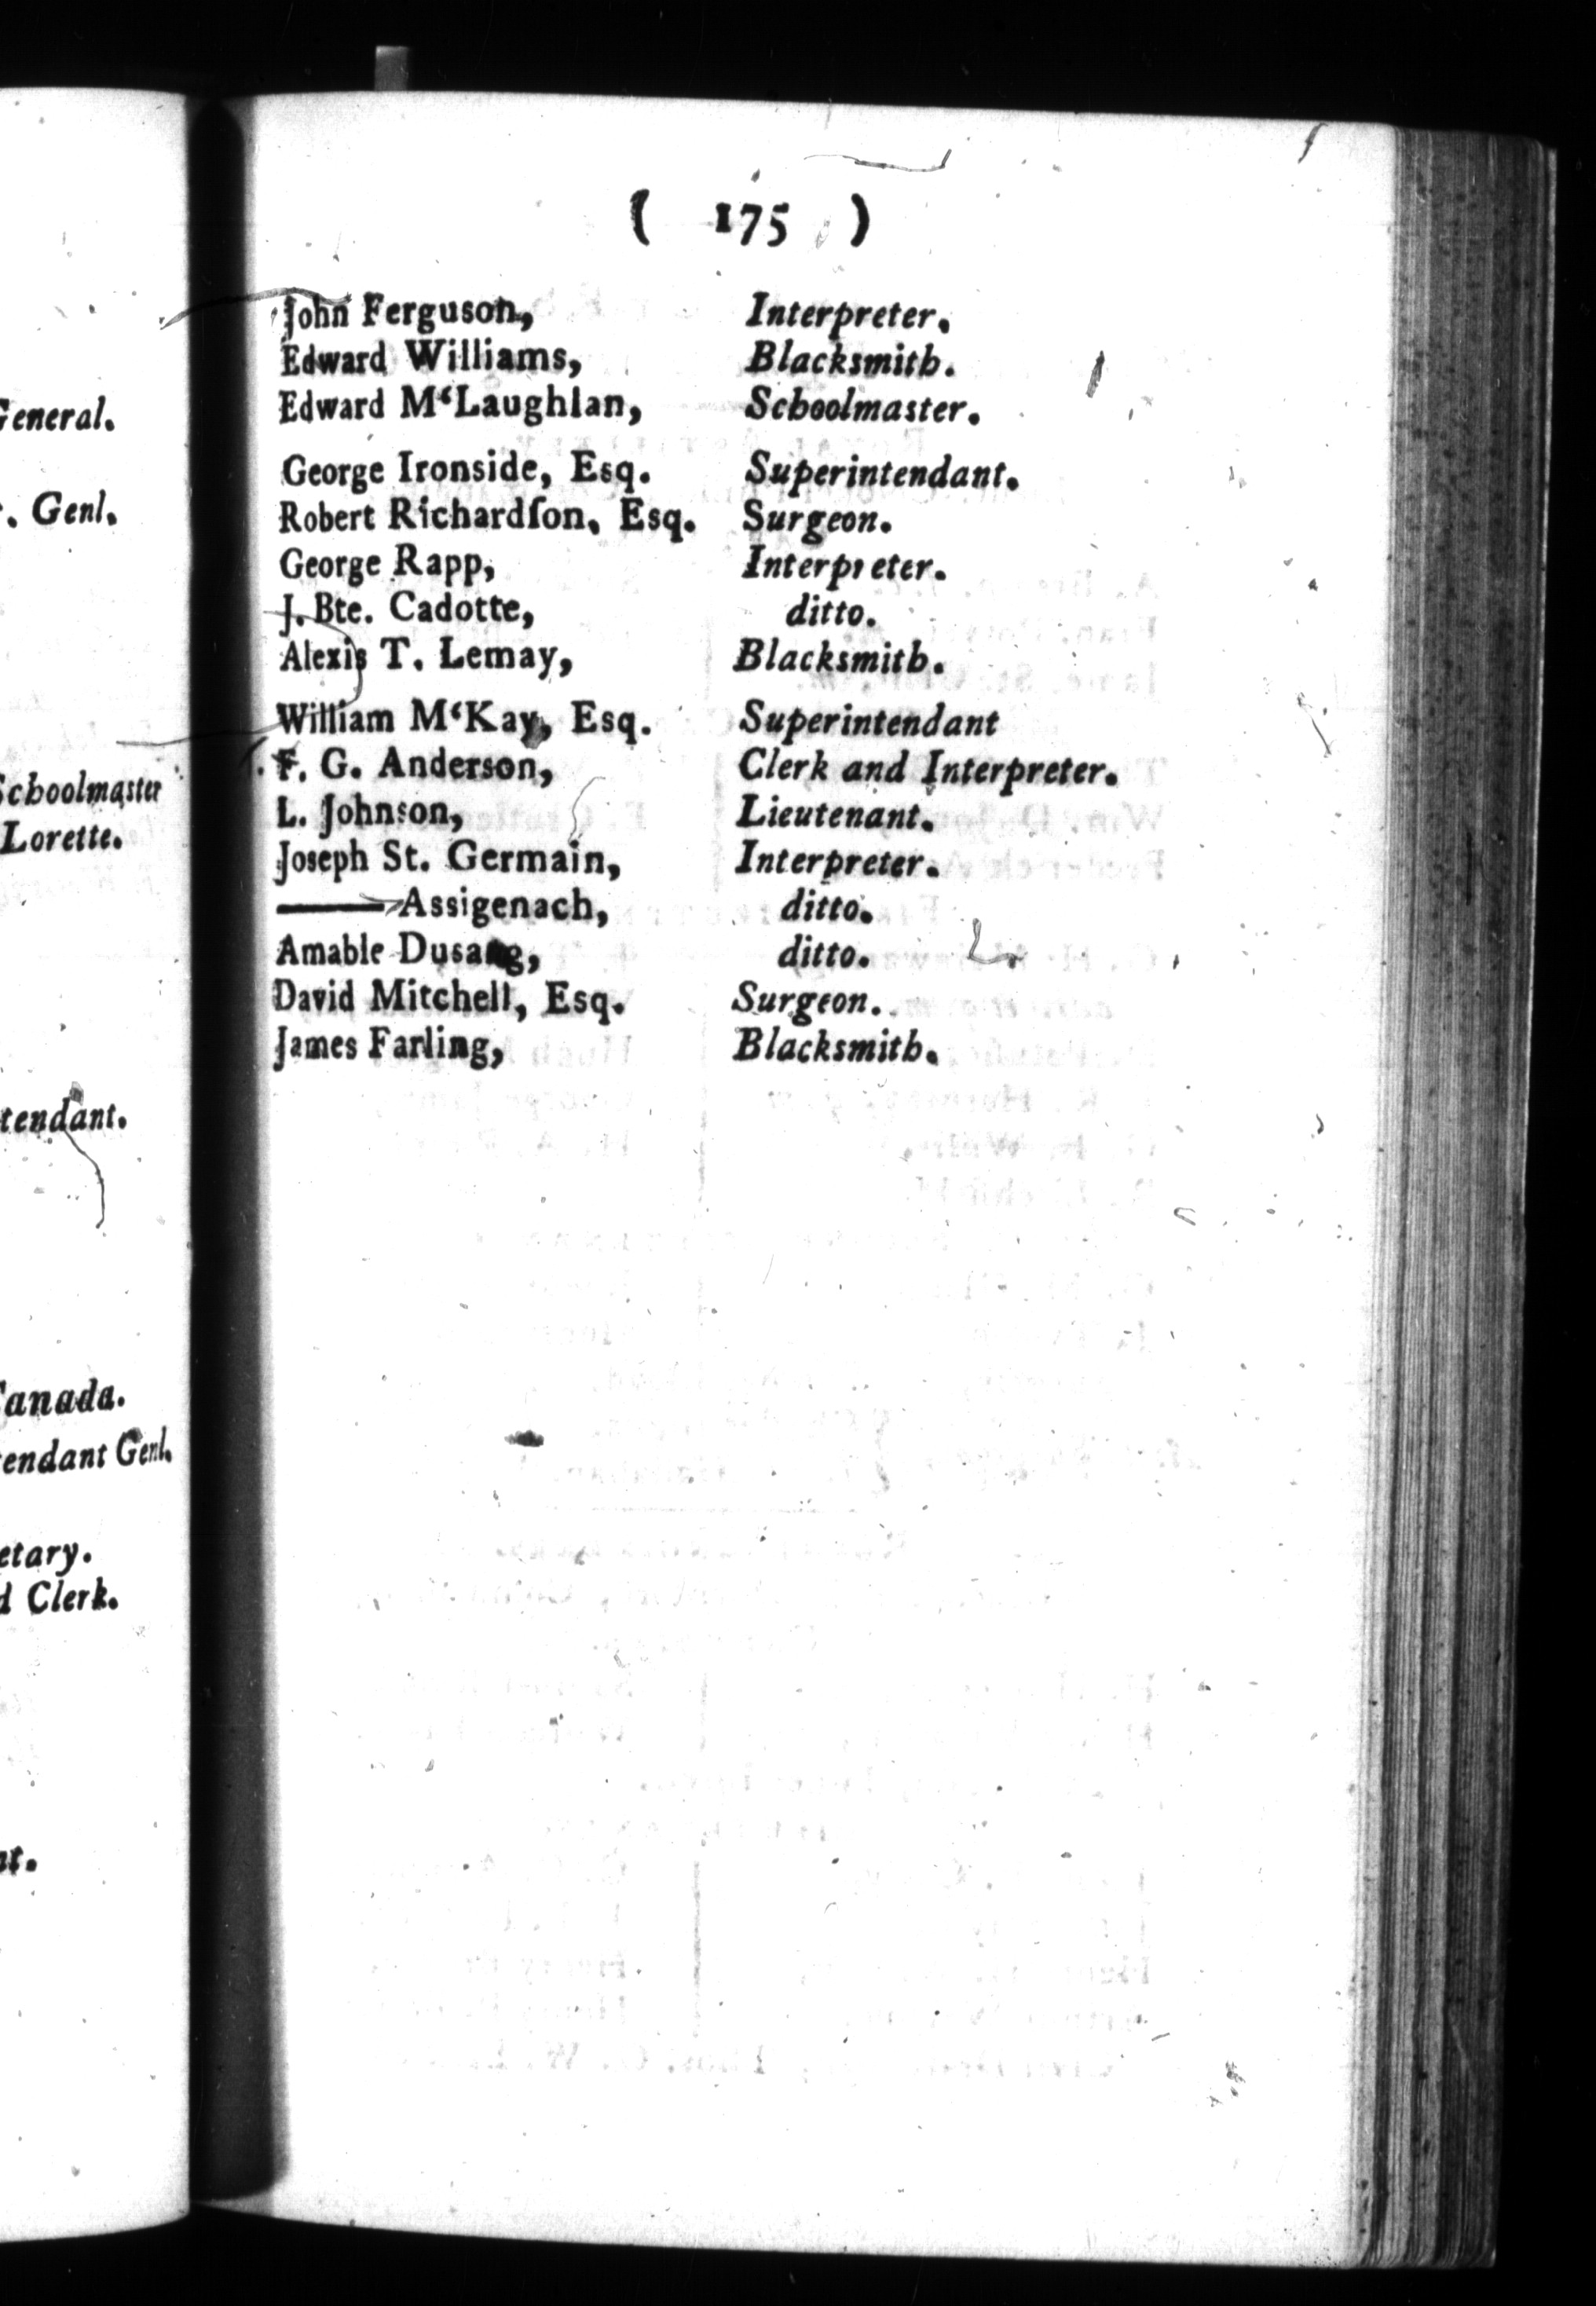 General.
Genl.
Schoolmaster
Lorette.
tendant.
Canada.
tendant Genl.
etary.
d Clerk.
( 175 )
John Ferguson, Interpreter.
Edward Williams, Blacksmith.
Edward M‘Laughlan, Schoolmaster.
George Ironside, Esq. Superintendant.
Robert Richardſon, Esq. Surgeon.
George Rapp, Interpreter.
J. Bte. Cadotte, ditto.
Alexis T. Lemay, Blacksmith.
William M‘Kay, Esq. Superintendant
F. G. Anderson, Clerk and Interpreter.
L. Johnson, Lieutenant.
Joseph St. Germain, Interpreter.
——— Assigenach, ditto.
Amable Dusang, ditto.
David Mitchell, Esq. Surgeon.
James Farling, Blacksmith.